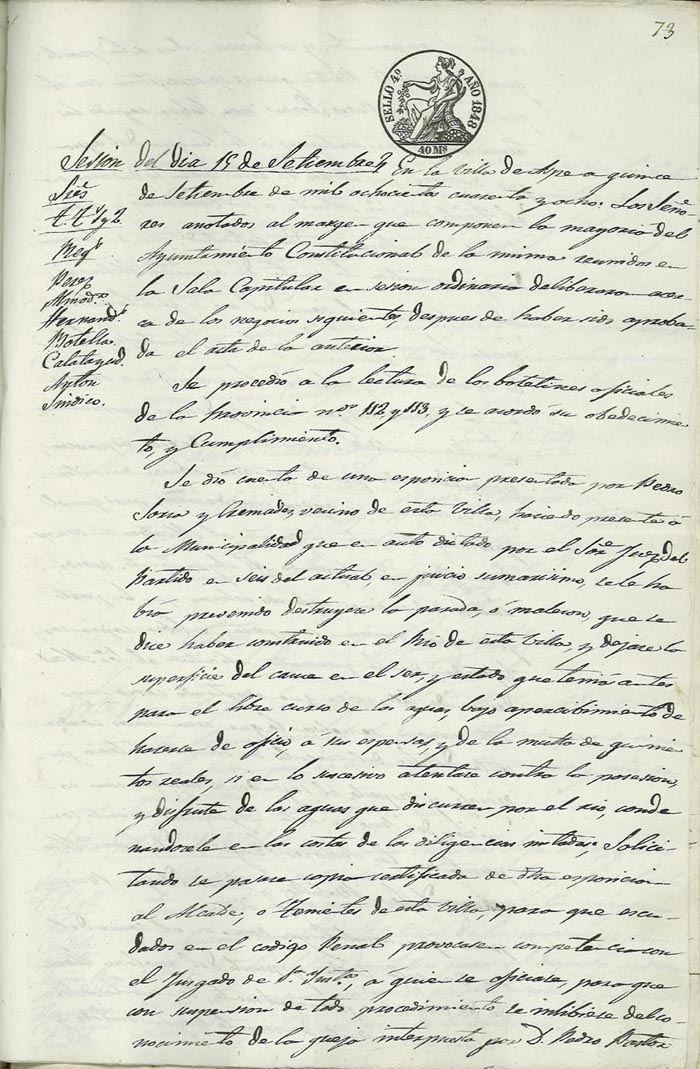 73
SELLO 4.º AÑO 1848
40 Ms
Sesion del dia 15 de Setiembre
Srēs
T. T. 1º y 2º
Reg.s
Perez
Almod.r
Hernand.z
Botella
Calatayud.
Anton
Sindico.
En la villa de Aspe a quince
de Setiembre de mil ochocientos cuarenta y ocho. Los Seño-
res anotados al margen que componen la mayoria del
Ayuntamiento Constitucional de la misma reunidos en
la Sala Capitular en sesion ordinaria deliberaron acer-
ca de los negocios siguientes, despues de haber sido aproba-
da el acta de la anterior
Se procedió a la lectura de los boletines oficiales
de la provincia n.os 112, y 113, y se acordó su obedecimie
to, y Cumplimiento.
Se dió cuenta de una esposicion presentada por Pedro
Soria y Cremades, vecino de esta Villa, haciedo presente á
la Municipalidad que en auto dictado por el Sor. Juez del
Partido en seis del actual en juicio sumarisimo, se le ha
bia prevenido destruyere la parada, ó malecon, que se
dice haber construido en el Rio de esta Villa, y dejare la
superficie del cauce en el ser, y estado que tenia antes
para el libre curso de las aguas, bajo apercibimiento de
hacerse de oficio, á sus espensas, y de la multa de quinie
tos reales, si en lo sucesivo atentase contra la posesion,
y disfrute de las aguas que discurren por el rio, conde
nandosele en las costas de las diligencias instadas; Solici-
tando se pasare copia certificada de dha esposicion
al Alcalde, o Tenietes de esta Villa, para que escu-
dados en el codigo Penal provocasen competencia con
el Juzgado de 1.ra Inst.a, á quien se oficiase, para que
con suspension de todo procedimiento se inhibiese del co-
nocimiento de la queja interpuesta por D. Pedro Pastor